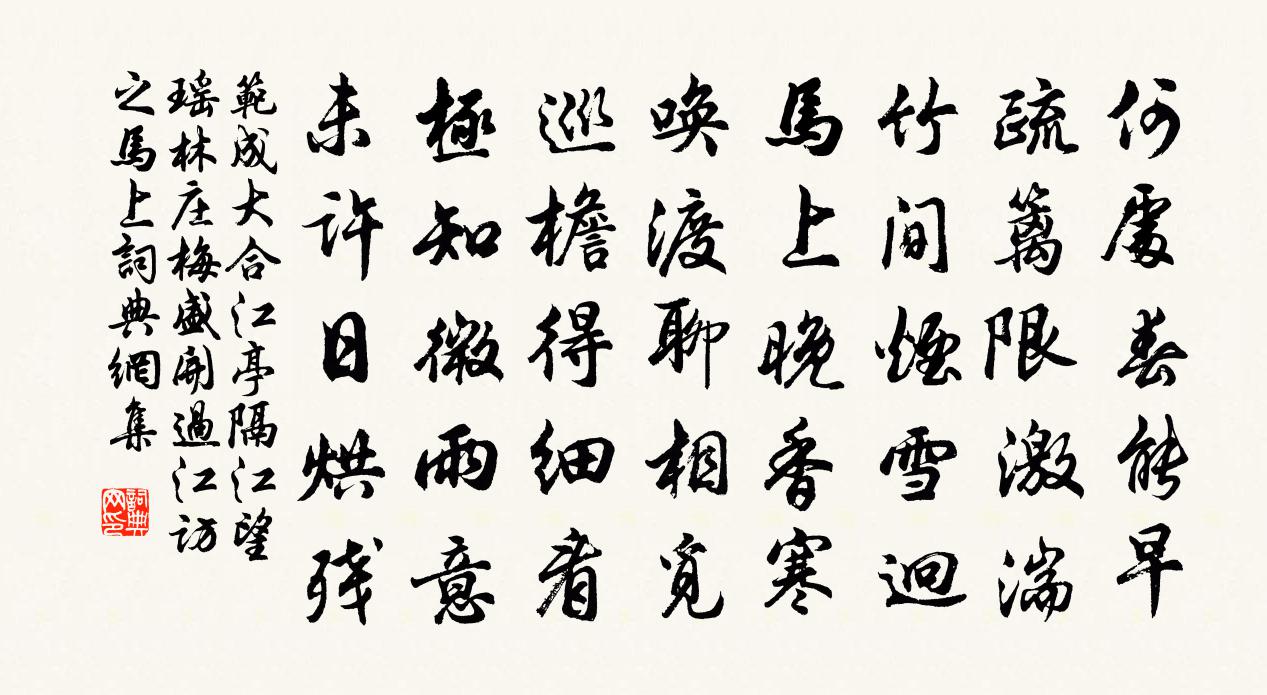 何處春能早
疏籬限激湍
竹间煙雪迥
馬上晚香寒
喚渡聊相覓
巡檐得细看
極知微雨意
未许日烘残
範成大合江亭隔江望
瑶林庄梅盛開過江訪
之馬上詞典網集
詞典网印